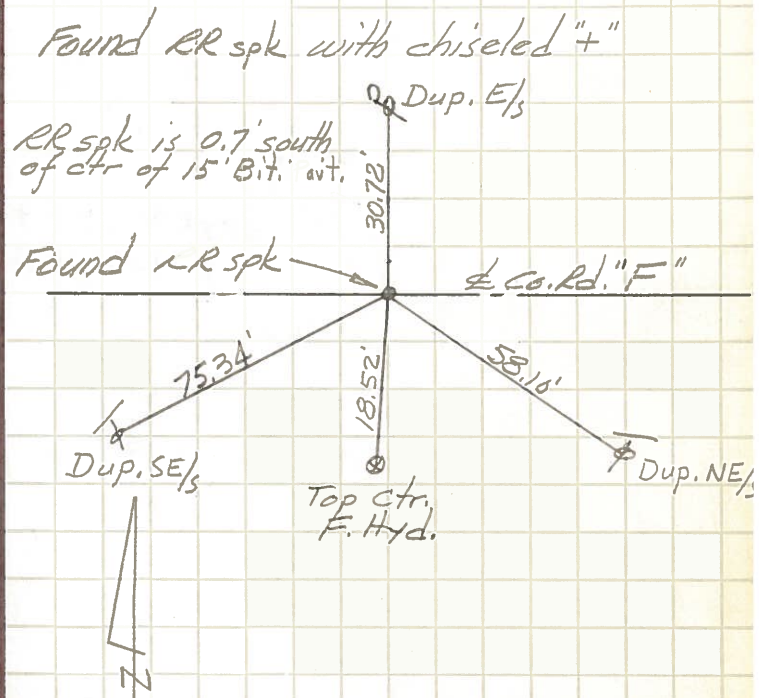 Found RR spk with chiseled "+"
Dup. E/s
RR spk is 0.7' south
of ctr of 15' Bit. avt.
30.72'
Found RR spk
℄ Co. Rd. "F"
75.34'
18.52'
58.10'
Dup. SE/s
Top Ctr.
F. Hyd.
Dup. NE/s
N